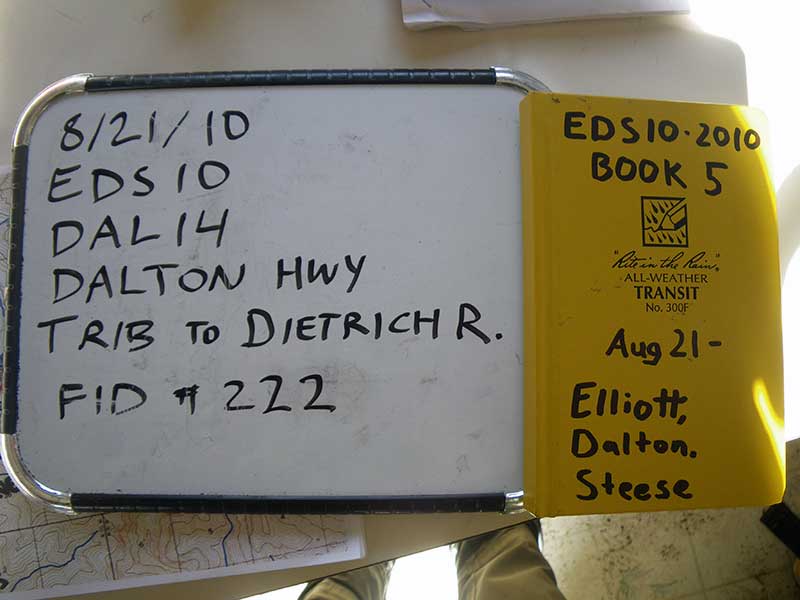 8/21/10
EDS10
DAL14
DALTON HWY
TRIB TO DIETRICH R.
FID # 222
EDS10-2010
BOOK 5
"Rite in the Rain"
ALL-WEATHER
TRANSIT
No. 300F
Aug 21-
Elliott,
Dalton.
Steese